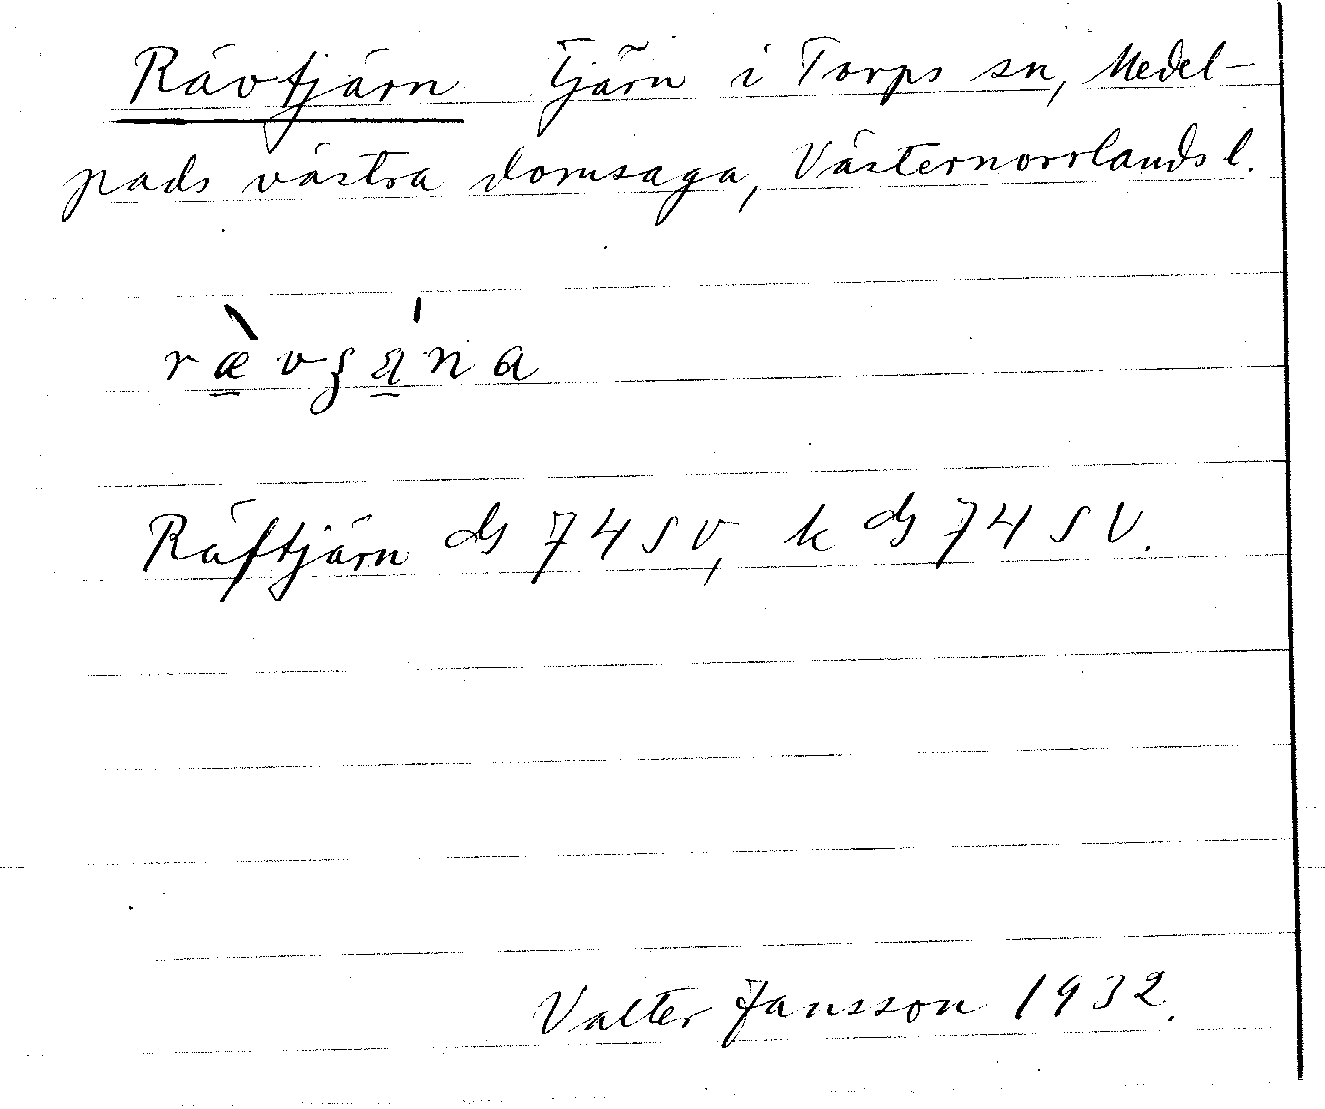 Rävtjärn Tjärn i Torps sn, Medel-
pads västra domsaga, Västernorrlands l.
Räftjärn ds 74 SV, k ds 74 SV.
Valter Jansson 1932.